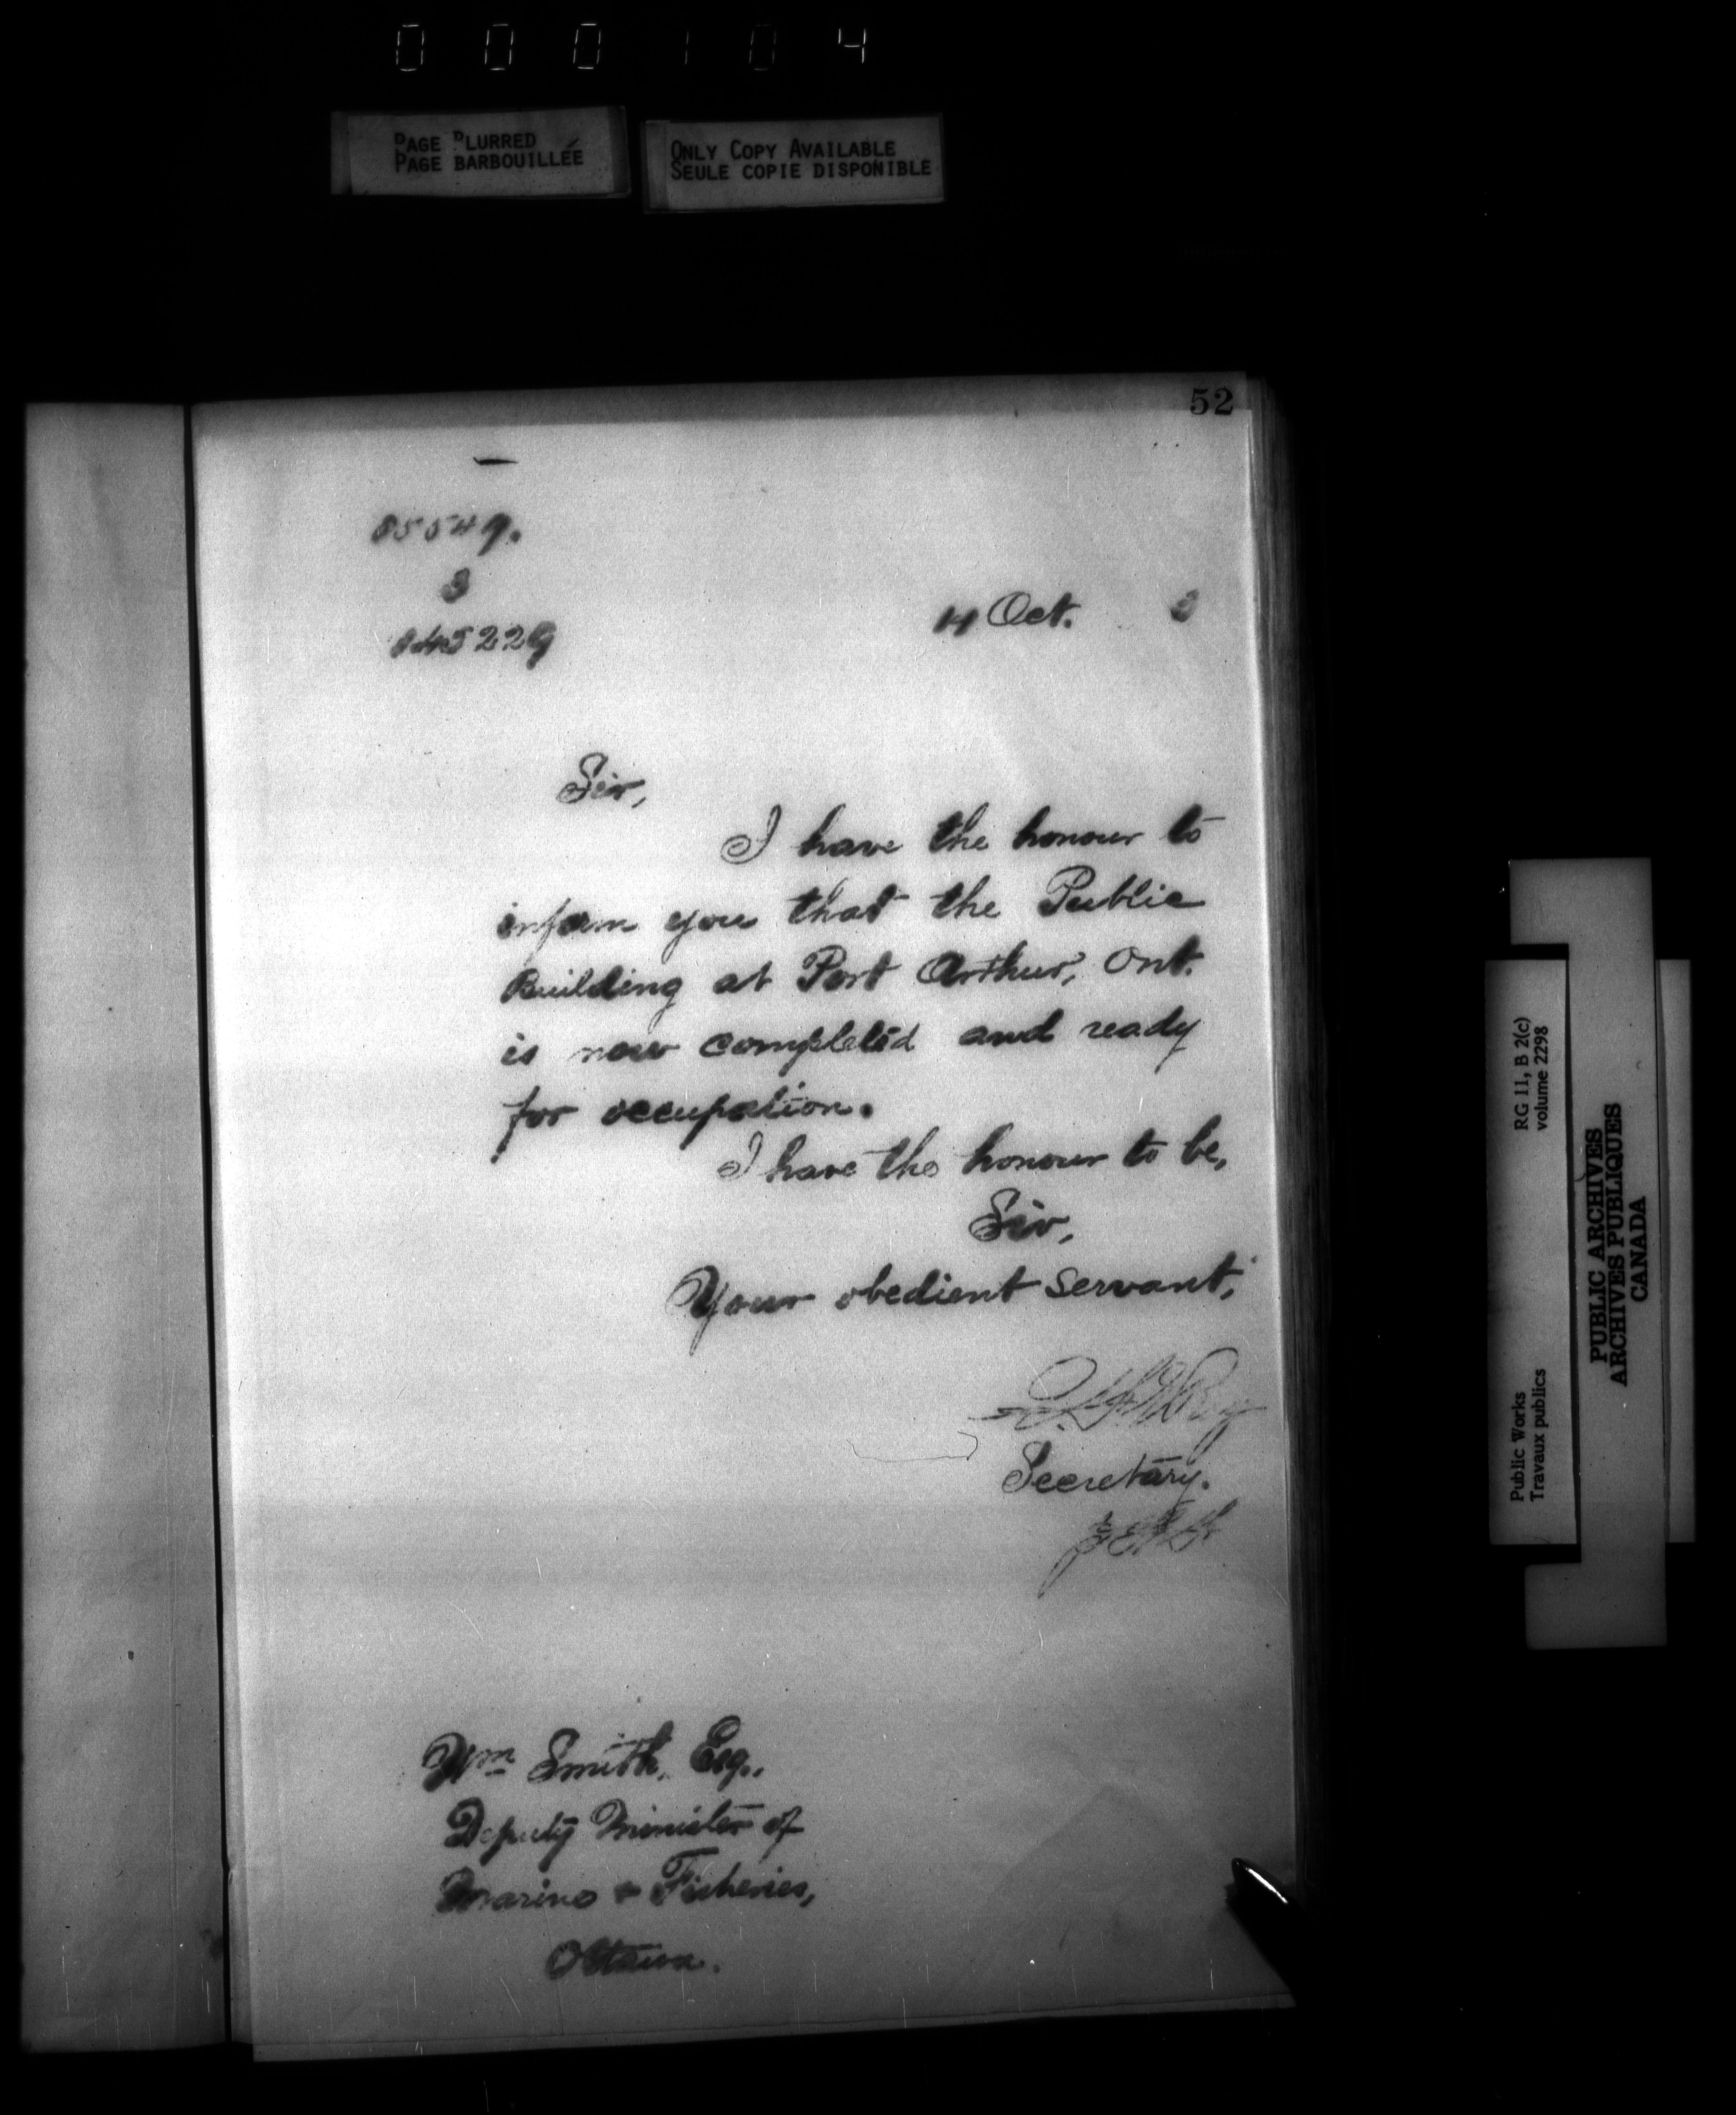 000104
PAGE BLURRED
PAGE BARBOUILLÉE
ONLY COPY AVAILABLE
SEULE COPIE DISPONIBLE
52
85549.
3
145229
14 Oct. 3
Sir,
I have the honour to
inform you that the Public
Building at Port Arthur, Ont.
is now completed and ready
for occupation.
I have the honour to be,
Sir,
Your obedient servant,
Secretary.
Wm Smith, Esq.,
Deputy Minister of
Marine & Fisheries,
Ottawa.
RG 11, B 2(c)
volume 2298
Public Works
Travaux publics
PUBLIC ARCHIVES
ARCHIVES PUBLIQUES
CANADA